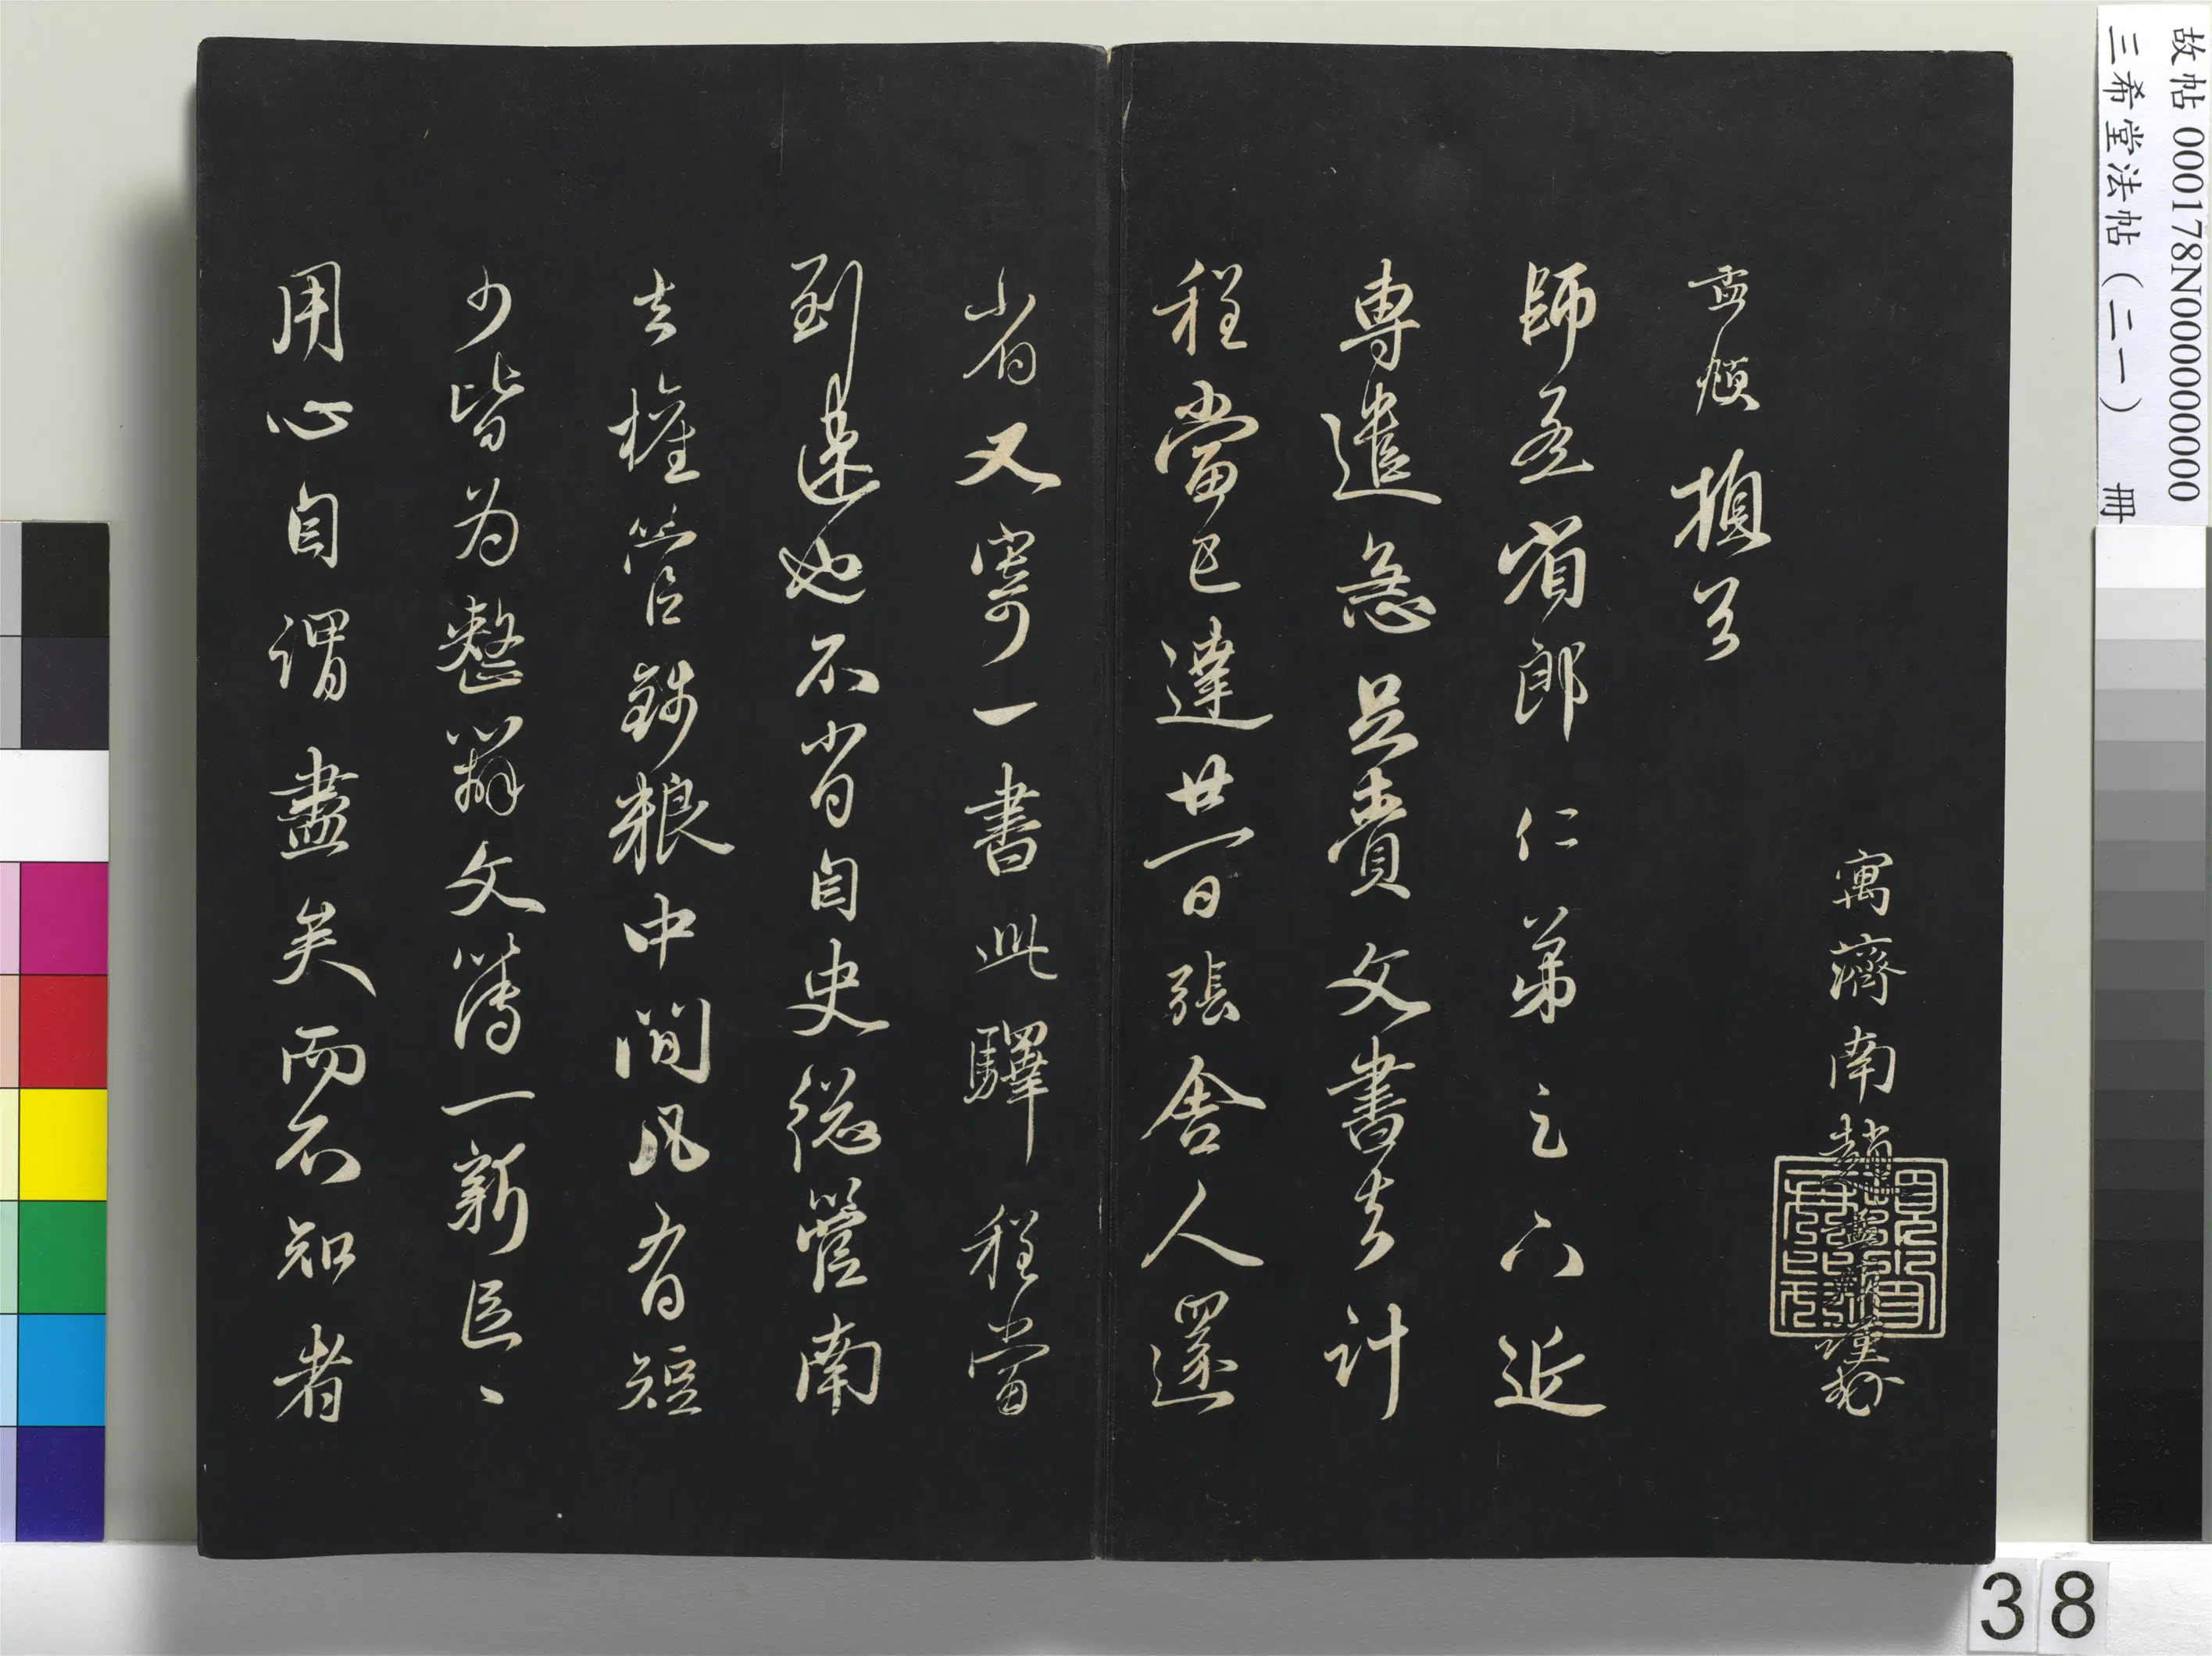 寓濟南趙孟頫謹封
孟頫頓首
師孟省郎仁弟足下近
專遣急足賫文書去計
程當已達廿一日張舍人還
省又寄一書此驛程當
到達也不肖自史總管南
去權管錢粮中間凡有短
少皆為整辦文簿一新區、
用心自謂盡矣而不知者
故帖 000178N000000000
三希堂法帖(二一) 冊
38